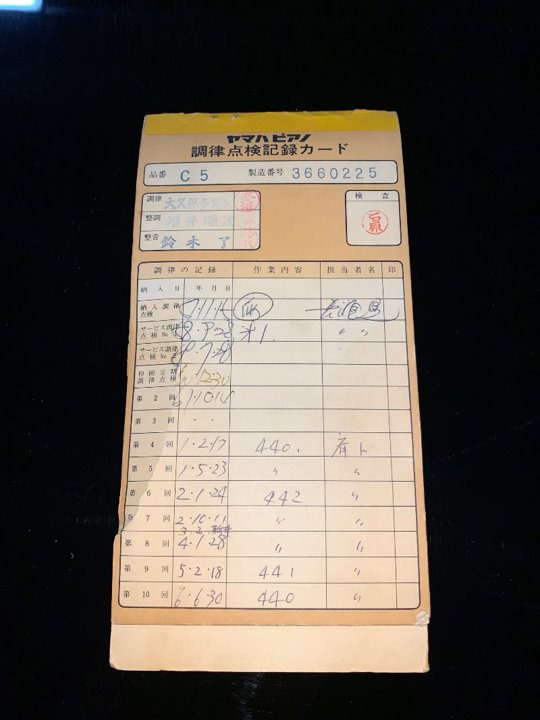 ヤマハピアノ
調律点検記録カード
品番 C5 製造番号 3660225
調律 大久保 検査
整調
整音 鈴木 了
石原
調律の記録 作業内容 担当者名 印
納入日 年月日
納入調律点検
サービス調律点検 No. 〃 〃
サービス調律点検 No.
初回定期調律点検
第2回
第3回 ・ ・
第4回 1・2・17 440.
第5回 1・5・23 〃 〃
第6回 2・1・24 442 〃
第7回 2・10・11 〃 〃
第8回 4・1・28 〃 〃
第9回 5・2・18 441 〃
第10回 6・6・30 440 〃